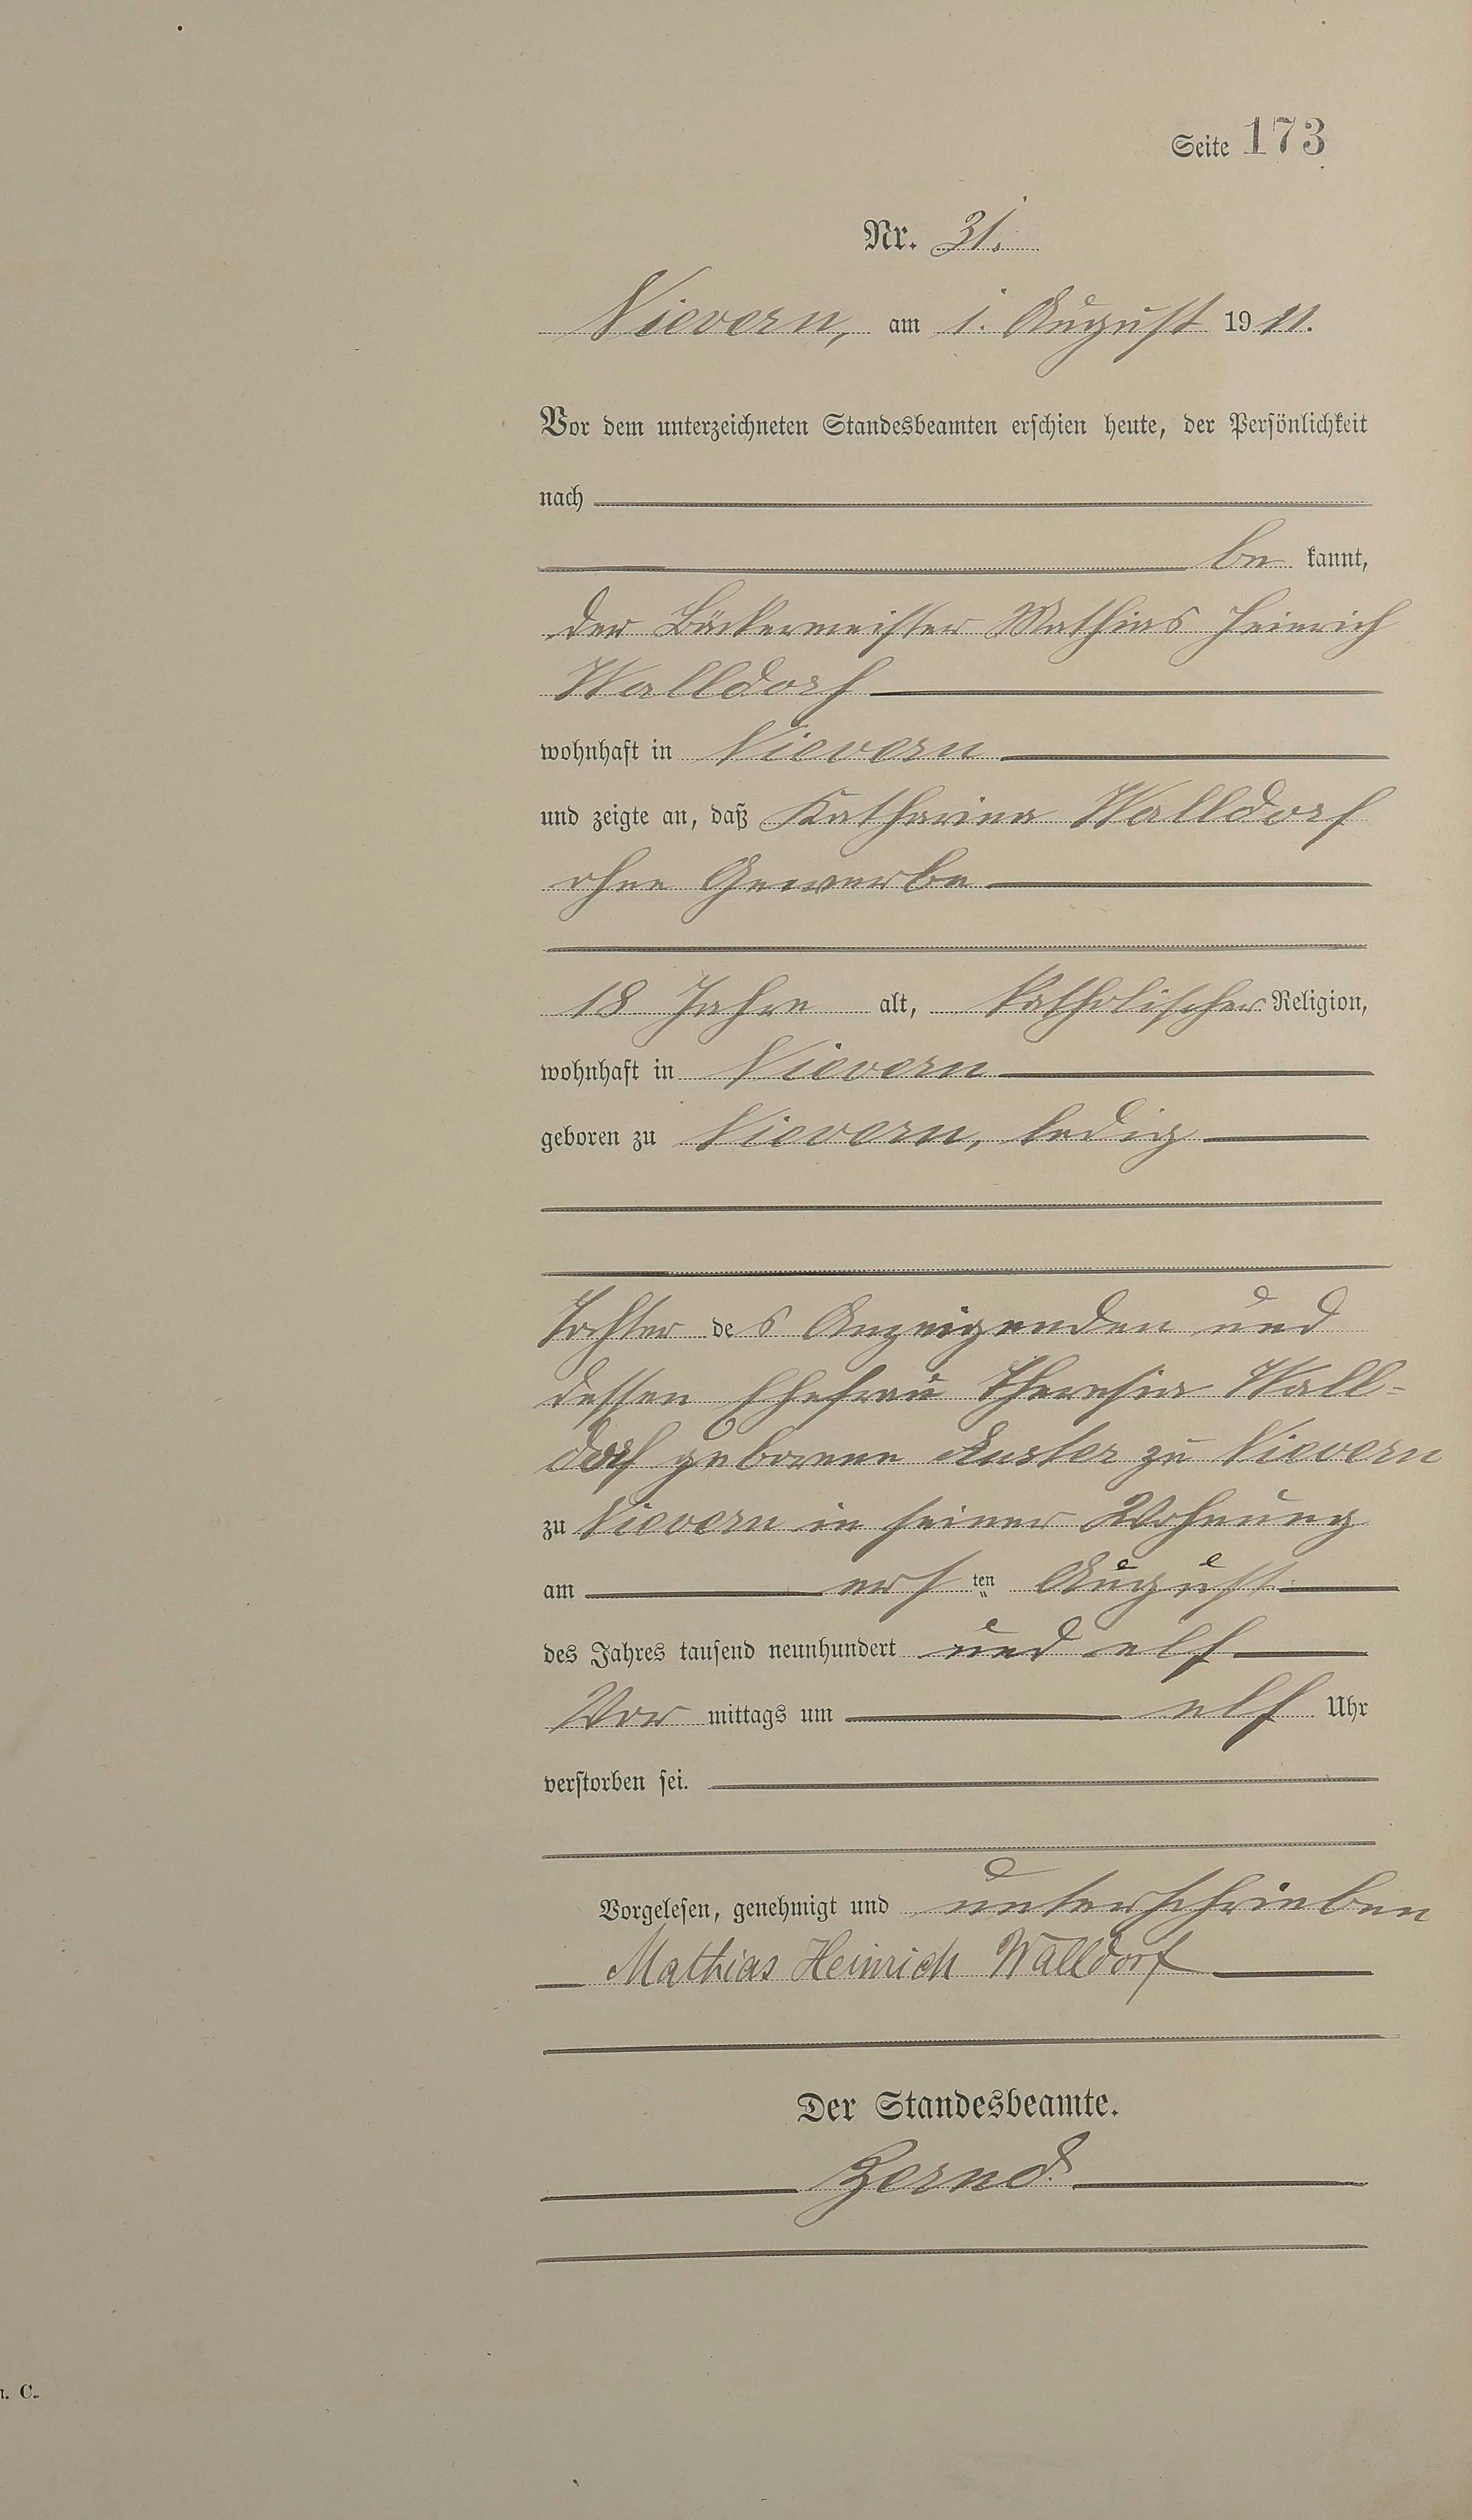 Seite 173
Nr. 31.
Nievern, am 1. August 1911.
Vor dem unterzeichneten Standesbeamten erschien heute, der Persönlichkeit
nach
be kannt,
der Bäckermeister Mathias Heinrich
Walldorf
wohnhaft in Nievern
und zeigte an, daß Katharina Walldorf
ohne Gewerbe
18 Jahre alt, katholischer Religion,
wohnhaft in Nievern
geboren zu Nievern, ledig
Tochter des Anzeigenden und
dessen Ehefrau Theresia Wall-
dorf geborene Auster zu Nievern
zu Nievern in seiner Wohnung
am ersten August
des Jahres tausend neunhundert und elf
Vor mittags um elf Uhr
verstorben sei.
Vorgelesen, genehmigt und unterschrieben
Mathias Heinrich Walldorf
Der Standesbeamte.
C.